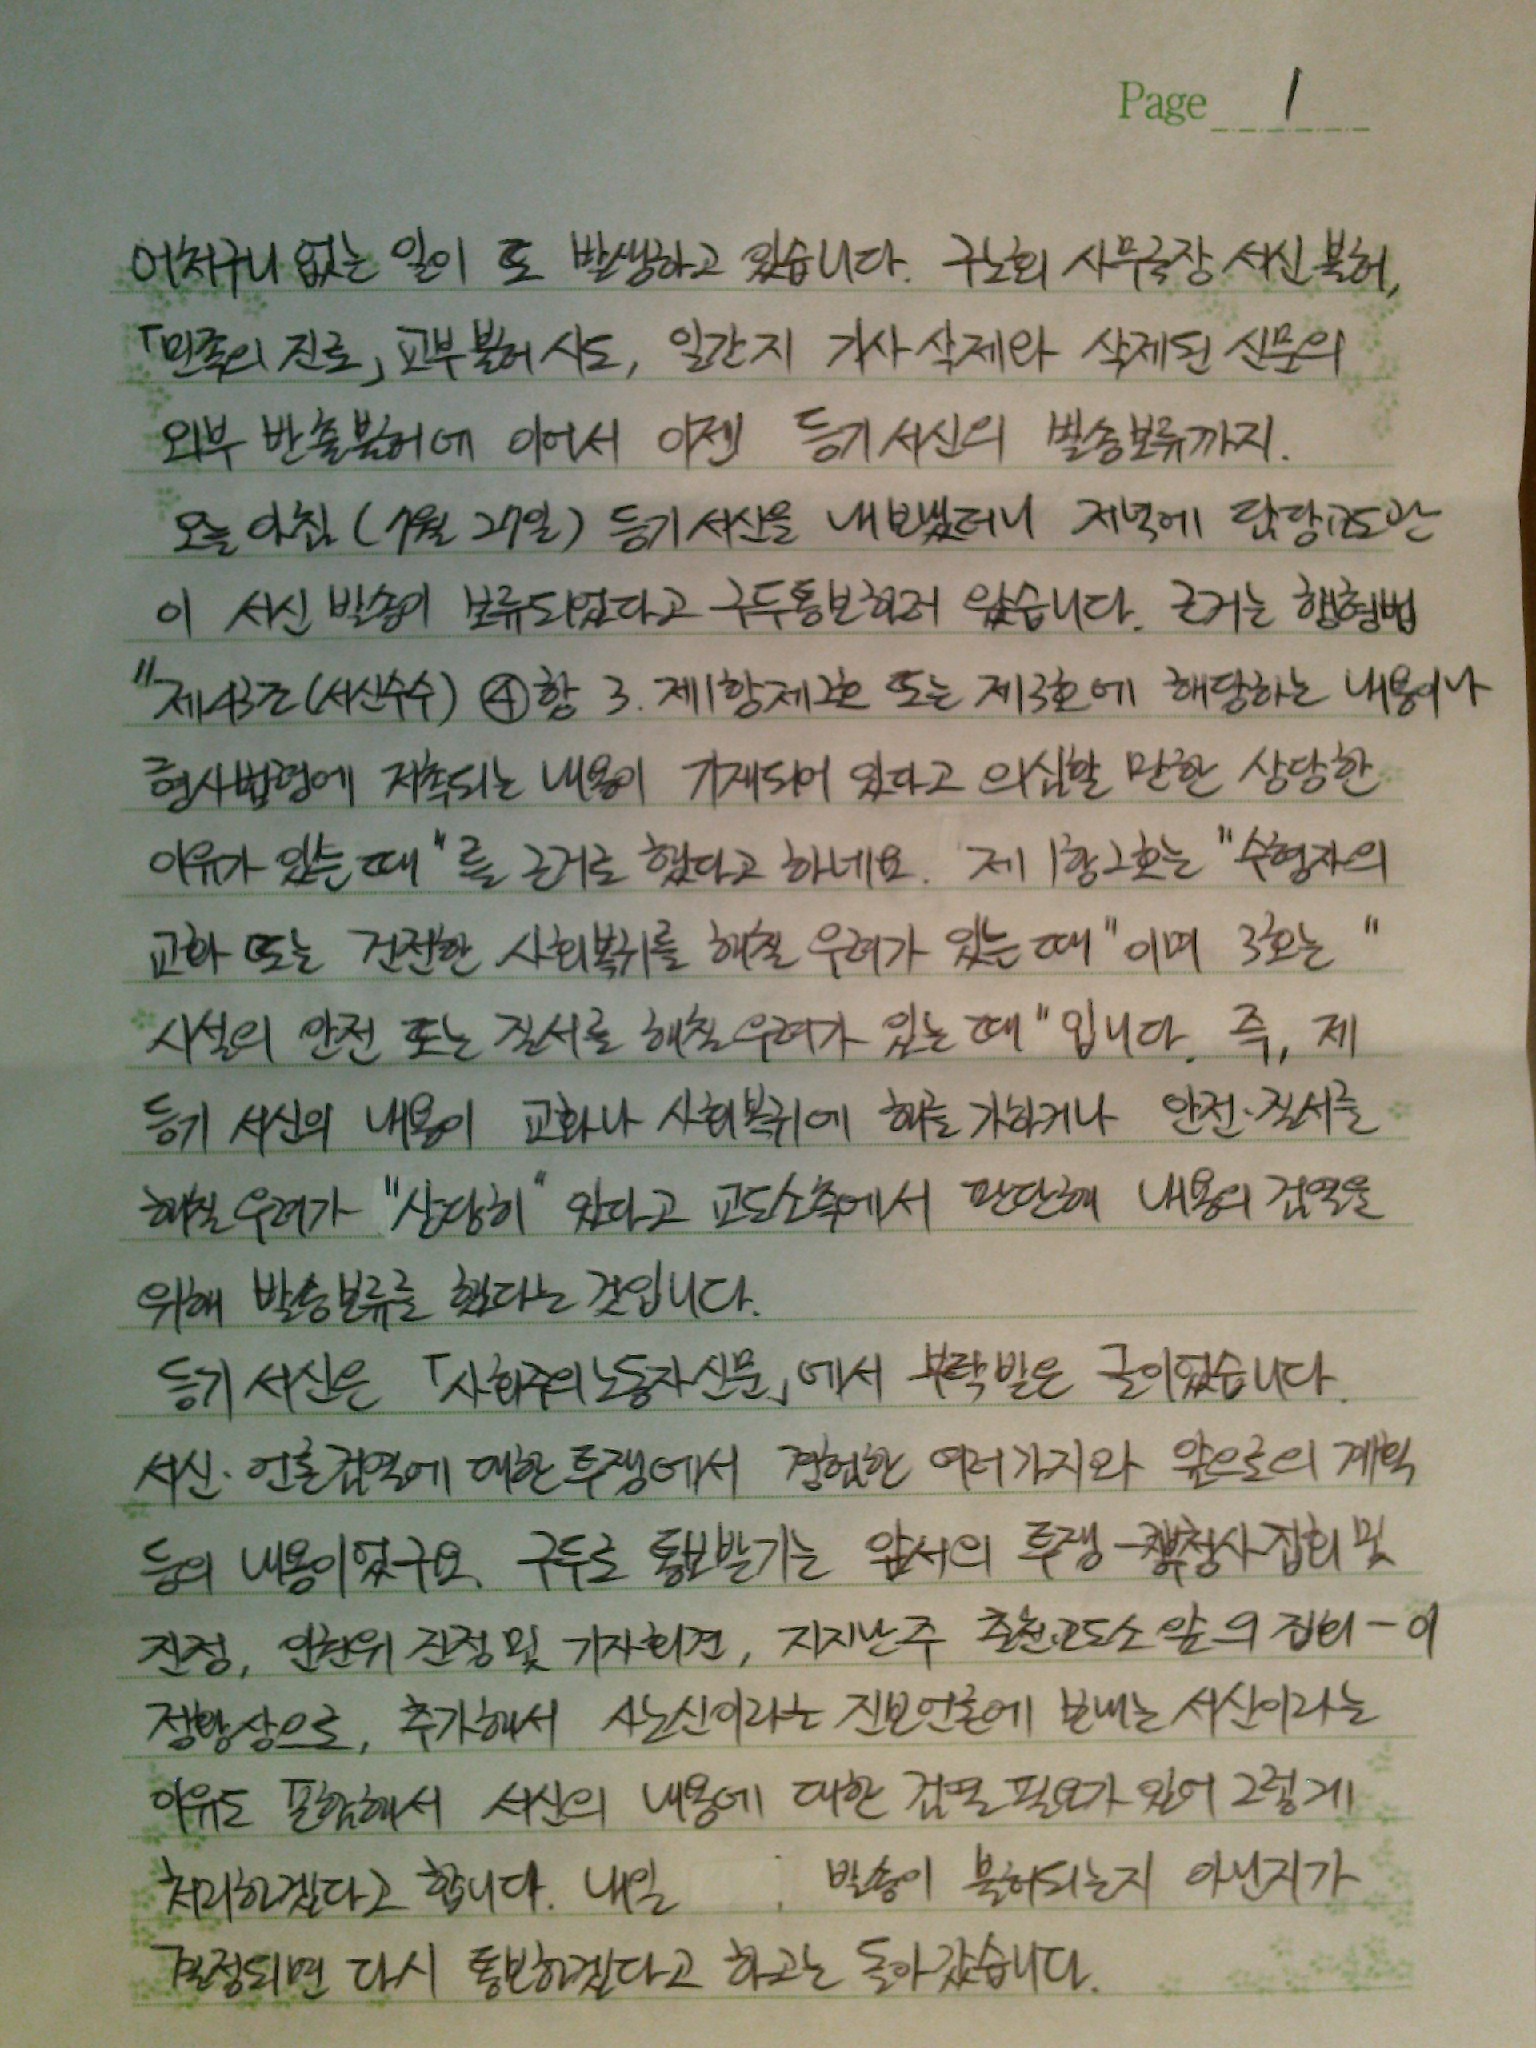 Page 1
어처구니 없는 일이 또 발생하고 있습니다. 구노회 사무국장 서신 불허,
「민족의 진로」 교부 불허 시도, 일간지 기사 삭제와 삭제된 신문의
외부 반출불허에 이어서 이젠 등기 서신의 발송보류까지.
오늘 아침 (7월 27일) 등기 서신을 내보냈더니 저녁에 담당교도관
이 서신 발송이 보류되었다고 구두통보하러 왔습니다. 근거는 행형법
"제43조(서신수수) ④항 3. 제1항제2호 또는 제3호에 해당하는 내용이나
형사법령에 저촉되는 내용이 기재되어 있다고 의심할 만한 상당한
이유가 있는 때"를 근거로 했다고 하네요. 제1항2호는 "수형자의
교화 또는 건전한 사회복귀를 해칠 우려가 있는 때"이며 3호는 "
시설의 안전 또는 질서를 해칠 우려가 있는 때"입니다. 즉, 제
등기 서신의 내용이 교화나 사회복귀에 해를 가하거나 안전·질서를
해칠 우려가 "상당히" 있다고 교도소측에서 판단해 내용의 검열을
위해 발송보류를 했다는 것입니다.
등기 서신은 「사회주의노동자신문」에서 부탁받은 글이었습니다.
서신·언론검열에 대한 투쟁에서 경험한 여러가지와 앞으로의 계획
등의 내용이었구요. 구두로 통보받기는 앞서의 투쟁-청사집회 및
진정, 인권위 진정 및 기자회견, 지지난주 춘천교도소 앞의 집회-이
정황상으로, 추가해서 사노신이라는 진보언론에 보내는 서신이라는
이유도 포함해서 서신의 내용에 대한 검열 필요가 있어 그렇게
처리하겠다고 합니다. 내일 발송이 불허되는지 아닌지가
결정되면 다시 통보하겠다고 하고는 돌아갔습니다.